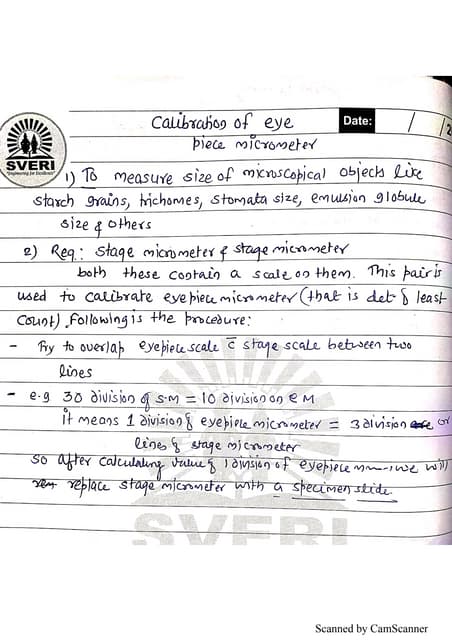 Calibration of eye
Date: / /2
piece micrometer
SVERI
"Engineering for Excellence"
1) To measure size of microscopical objects like
starch grains, trichomes, stomata size, emulsion globule
size & others
2) Req: Stage micrometer & stage micrometer
both these contain a scale on them. This pair is
used to calibrate eyepiece micrometer (that is det of least
count). Following is the procedure:
- Try to overlap eyepiece scale c̄ stage scale between two
lines
- e.g 30 division of S.M = 10 division on E M
it means 1 division of eyepiece micrometer = 3 division or
lines of stage micrometer
so after calculating value of 1 division of eyepiece we will
replace stage micrometer with a specimen slide.
SVERI
Scanned by CamScanner